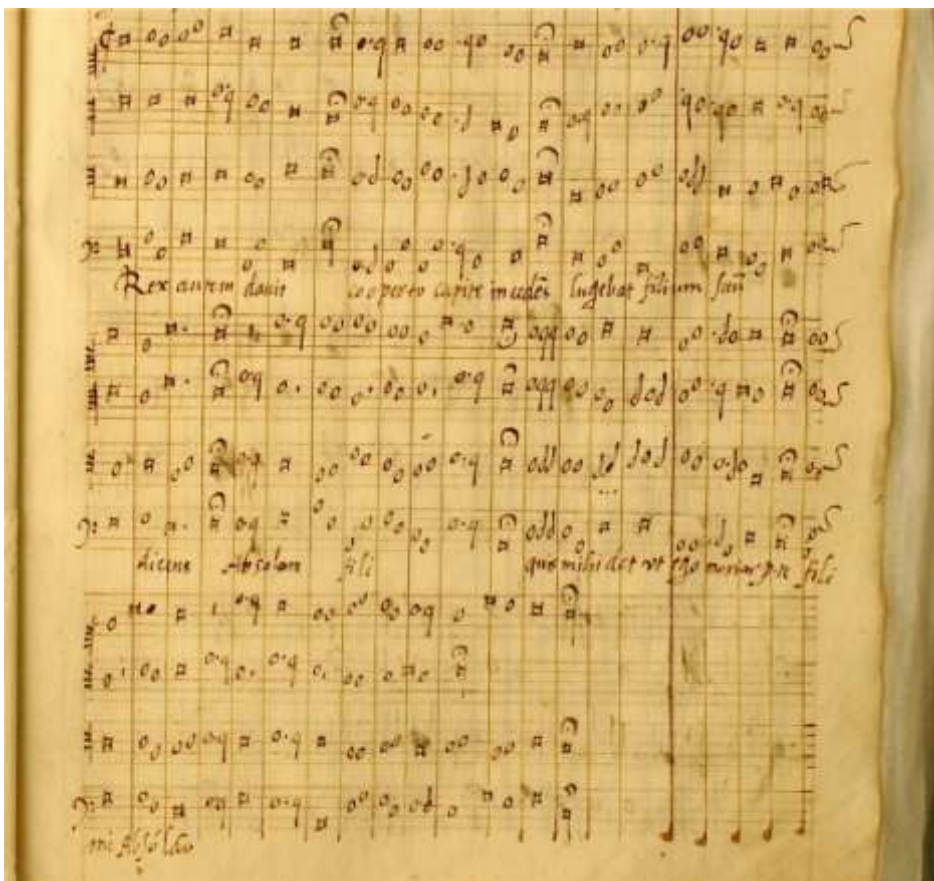 Rex autem dauit cooperto capite incedēs lugebat filium suū
dicens Absalon fili quis mihi det vt ego moriar p te fili
mi Absalō